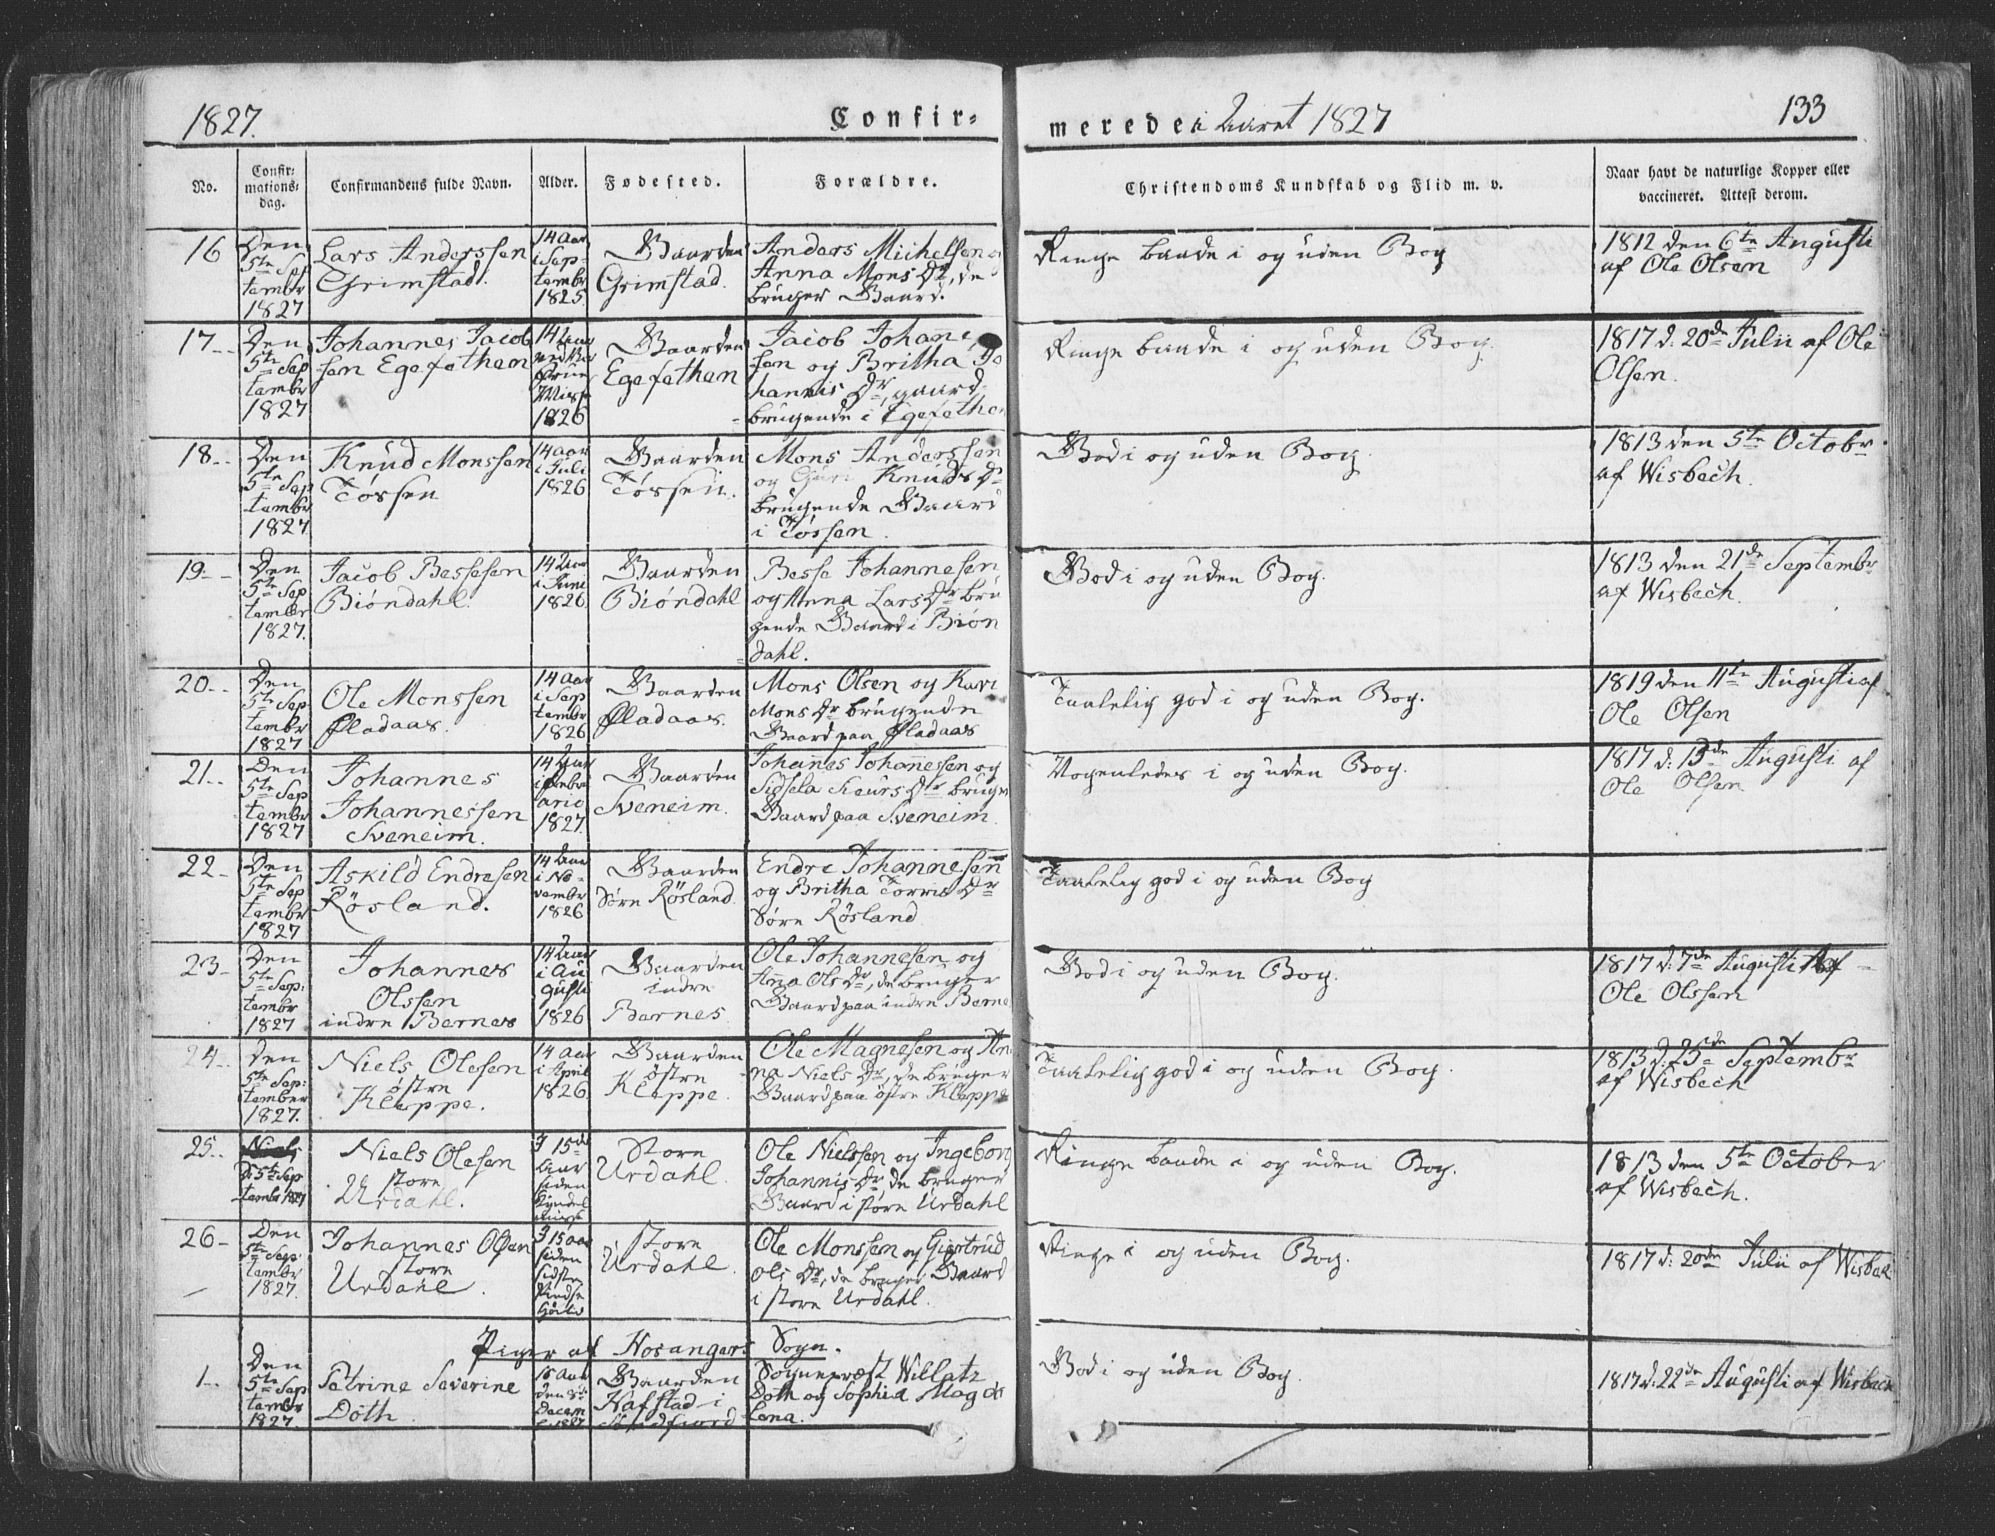 1827.
Confir-
merede i Aaret 1827
133
No.
Confir-
mations-
dag.
Confirmandens fulde Navn.
Alder.
Fødested.
Forældre.
Christendoms Kundskab og Flid m. v.
Naar havt de naturlige Kopper eller
vaccineret. Attest derom.
16
Den
5te Sep
tembr
1827
Lars Anderssen
Grimstad.
14 Aar
i Sep-
tembr
1825
Gaarden
Grimstad.
Anders Michelsen
Anna Mons Dr, de
bruger Gaard.
Ringe baade i og uden Bog
1812 den 6te Augusti
af Ole Olsen
17
Den
5te Sep
tembr
1827
Johannes Jacob
sen Egefethem
14 Aar
1826
Gaarden
Egefethem
Jacob Johane
sen og Britha Jo
hannis Dr, gaard-
brugende i Egefethem
Ringe baade i og uden Bog.
1817 d. 20de Julii af Ole
Olsen.
18
Den
5te Sep
tembr
1827
Knud Monssen
Tossen
14 Aar
i Juli
1826
Gaarden
Tossen.
Mons Anderssen
og Guri Knuds Dr
brugende Gaard
i Tossen.
God i og uden Bog
1813 den 5te Octobr
af Wisbech.
19
Den
5te Sep
tembr
1827.
Jacob Bessesen
Biøndahl.
14 Aar
i Juni
1826
Gaarden
Biøndahl
Besse Johannesen
og Anna Lars Dr bru
gende Gaard i Biøn
dahl.
God i og uden Bog.
1813 den 21de Septembr
af Wisbech.
20
Den
5te Sep
tembr
1827
Ole Monssen
Fladaas.
14 Aar
i Sep
tembr
1826
Gaarden
Fladaas.
Mons Olsen og Kari
Mons Dr brugende
Gaard paa Fladaas
Taalelig god i og uden Bog.
1819 den 11te Augusti af
Ole Olsen
21
Den
5te Sep
tembr
1827
Johannes
Johannessen
Sveneim.
14 Aar
i Febru
ario
1827.
Gaarden
Sveneim.
Johanes Johanesen og
Sidsela Siurs Dr bruger
Gaard paa Sveneim.
Nogenledes i og uden Bog.
1817 d: 13de Augusti af
Ole Olsen
22
Den
5te Sep
tembr
1827
Askild Endresen
Røsland.
14 Aar
i No-
vembr
1826
Gaarden
Søre Røsland.
Endre Johannesen
og Britha Torris Dr
Søre Røsland
Taalelig god i og uden Bog
23
Den
5te Sep:
tembr
1827
Johannes
Olssen
indre Bernes
14 Aar
i Au
gusti
1826
Gaarden
indre
Bernes.
Ole Johannesen og
Anna Ols Dr, de bruger
Gaard paa indre Berne
God i og uden Bog.
1817 d: 7de Augusti af
Ole Olssen
24
Den
5te Sep:
tember
1827.
Niels Olesen
østre
Kleppe.
14 Aar
i April
1826
Gaarden
østre
Kleppe.
Ole Magnesen og An
na Niels Dr, de bruger
Gaard paa østre Kleppe
Taalelig god i og uden Bog.
1813 d: 25de Septembr
af Wisbech
25
Niels
D: 5te Sep
tembr 1827
Niels Olesen
store
Urdahl.
I 15de
Aar
siden
Kyndel
misse
Store
Urdahl.
Ole Nielssen og Ingeborg
Johannis Dr de bruger
Gaard i store Urdahl
Ringe baade i og uden Bog.
1813 den 5te October
af Wisbech.
26
Den
5te Sep:
tembr
1827.
Johannes Olsen
store
Urdahl.
I 15 Aar
siden
sidste
Pindse
Høitid
store
Urdahl.
Ole Monssen og Giertrud
Ols Dr, de bruger Gaard
i store Urdahl.
Ringe i og uden Bog.
1817 d: 20de Julii af Wisbek
Piger af Hosangers Sogn.
1
Den
5te Sep
tembr
1827
Petrine Severine
Döth
15 Aar
den 8de
Decem
Gaarden
Hafstad i
Søndfiord
Sognepræst Willatz
Doth og Sophia Magda
lena.
God i og uden Bog.
1817 d: 22de Augusti af Wisbech